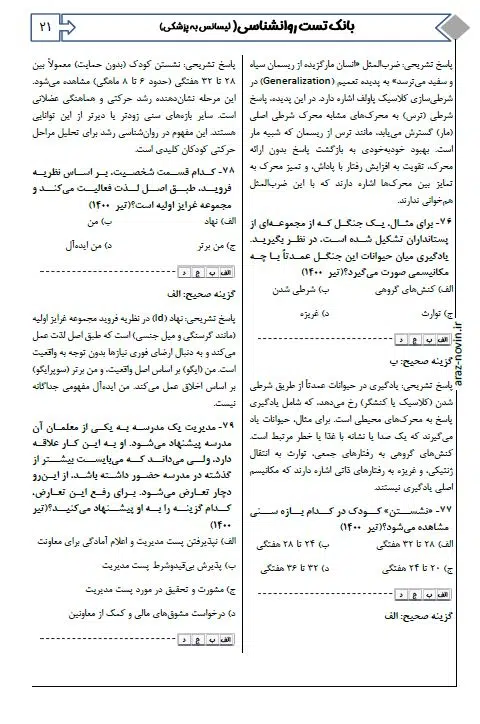 بانک تست روانشناسی( لیسانس به پزشکی)
۲۱
پاسخ تشریحی: ضرب‌المثل «انسان مارگزیده از ریسمان سیاه
و سفید می‌ترسد» به پدیده تعمیم (Generalization) در
شرطی‌سازی کلاسیک پاولف اشاره دارد. در این پدیده، پاسخ
شرطی (ترس) به محرک‌های مشابه محرک شرطی اصلی
(مار) گسترش می‌یابد، مانند ترس از ریسمان که شبیه مار
است. بهبود خودبه‌خودی به بازگشت پاسخ بدون ارائه
محرک، تقویت به افزایش رفتار با پاداش، و تمیز محرک به
تمایز بین محرک‌ها اشاره دارند که با این ضرب‌المثل
هم‌خوانی ندارند.
۷۶- برای مثال، یک جنگل که از مجموعه‌ای از
پستانداران تشکیل شده است، در نظر بگیرید.
یادگیری میان حیوانات این جنگل عمدتاً با چه
مکانیسمی صورت می‌گیرد؟(تیر ۱۴۰۰)
الف) کنش‌های گروهی
ب) شرطی شدن
ج) توارث
د) غریزه
الف ب ج د
گزینه صحیح: ب
پاسخ تشریحی: یادگیری در حیوانات عمدتاً از طریق شرطی
شدن (کلاسیک یا کنشگر) رخ می‌دهد، که شامل یادگیری
پاسخ به محرک‌های محیطی است. برای مثال، حیوانات یاد
می‌گیرند که یک صدا یا نشانه با غذا یا خطر مرتبط است.
کنش‌های گروهی به رفتارهای جمعی، توارث به انتقال
ژنتیکی، و غریزه به رفتارهای ذاتی اشاره دارند که مکانیسم
اصلی یادگیری نیستند.
۷۷- «نشستن» کودک در کدام بازه سنی
مشاهده می‌شود؟(تیر ۱۴۰۰)
الف) ۲۸ تا ۳۲ هفتگی
ب) ۲۴ تا ۲۸ هفتگی
ج) ۲۰ تا ۲۴ هفتگی
د) ۳۲ تا ۳۶ هفتگی
الف ب ج د
گزینه صحیح: الف
پاسخ تشریحی: نشستن کودک (بدون حمایت) معمولاً بین
۲۸ تا ۳۲ هفتگی (حدود ۶ تا ۸ ماهگی) مشاهده می‌شود.
این مرحله نشان‌دهنده رشد حرکتی و هماهنگی عضلانی
است. سایر بازه‌های سنی زودتر یا دیرتر از این توانایی
هستند. این مفهوم در روان‌شناسی رشد برای تحلیل مراحل
حرکتی کودکان کلیدی است.
۷۸- کدام قسمت شخصیت، بر اساس نظریه
فروید، طبق اصل لذت فعالیت می‌کند و
مجموعه غرایز اولیه است؟(تیر ۱۴۰۰)
الف) نهاد
ب) من
ج) من برتر
د) من ایده‌آل
الف ب ج د
گزینه صحیح: الف
پاسخ تشریحی: نهاد (Id) در نظریه فروید مجموعه غرایز اولیه
(مانند گرسنگی و میل جنسی) است که طبق اصل لذت عمل
می‌کند و به دنبال ارضای فوری نیازها بدون توجه به واقعیت
است. من (ایگو) بر اساس اصل واقعیت، و من برتر (سوپرایگو)
بر اساس اخلاق عمل می‌کند. من ایده‌آل مفهومی جداگانه
نیست.
۷۹- مدیریت یک مدرسه به یکی از معلمان آن
مدرسه پیشنهاد می‌شود. او به این کار علاقه
دارد، ولی می‌داند که می‌بایست بیشتر از
گذشته در مدرسه حضور داشته باشد، از این‌رو
دچار تعارض می‌شود. برای رفع این تعارض،
کدام گزینه را به او پیشنهاد می‌کنید؟(تیر
۱۴۰۰)
الف) نپذیرفتن پست مدیریت و اعلام آمادگی برای معاونت
ب) پذیرش بی‌قیدوشرط پست مدیریت
ج) مشورت و تحقیق در مورد پست مدیریت
د) درخواست مشوق‌های مالی و کمک از معاونین
الف ب ج د
araz-novin.ir